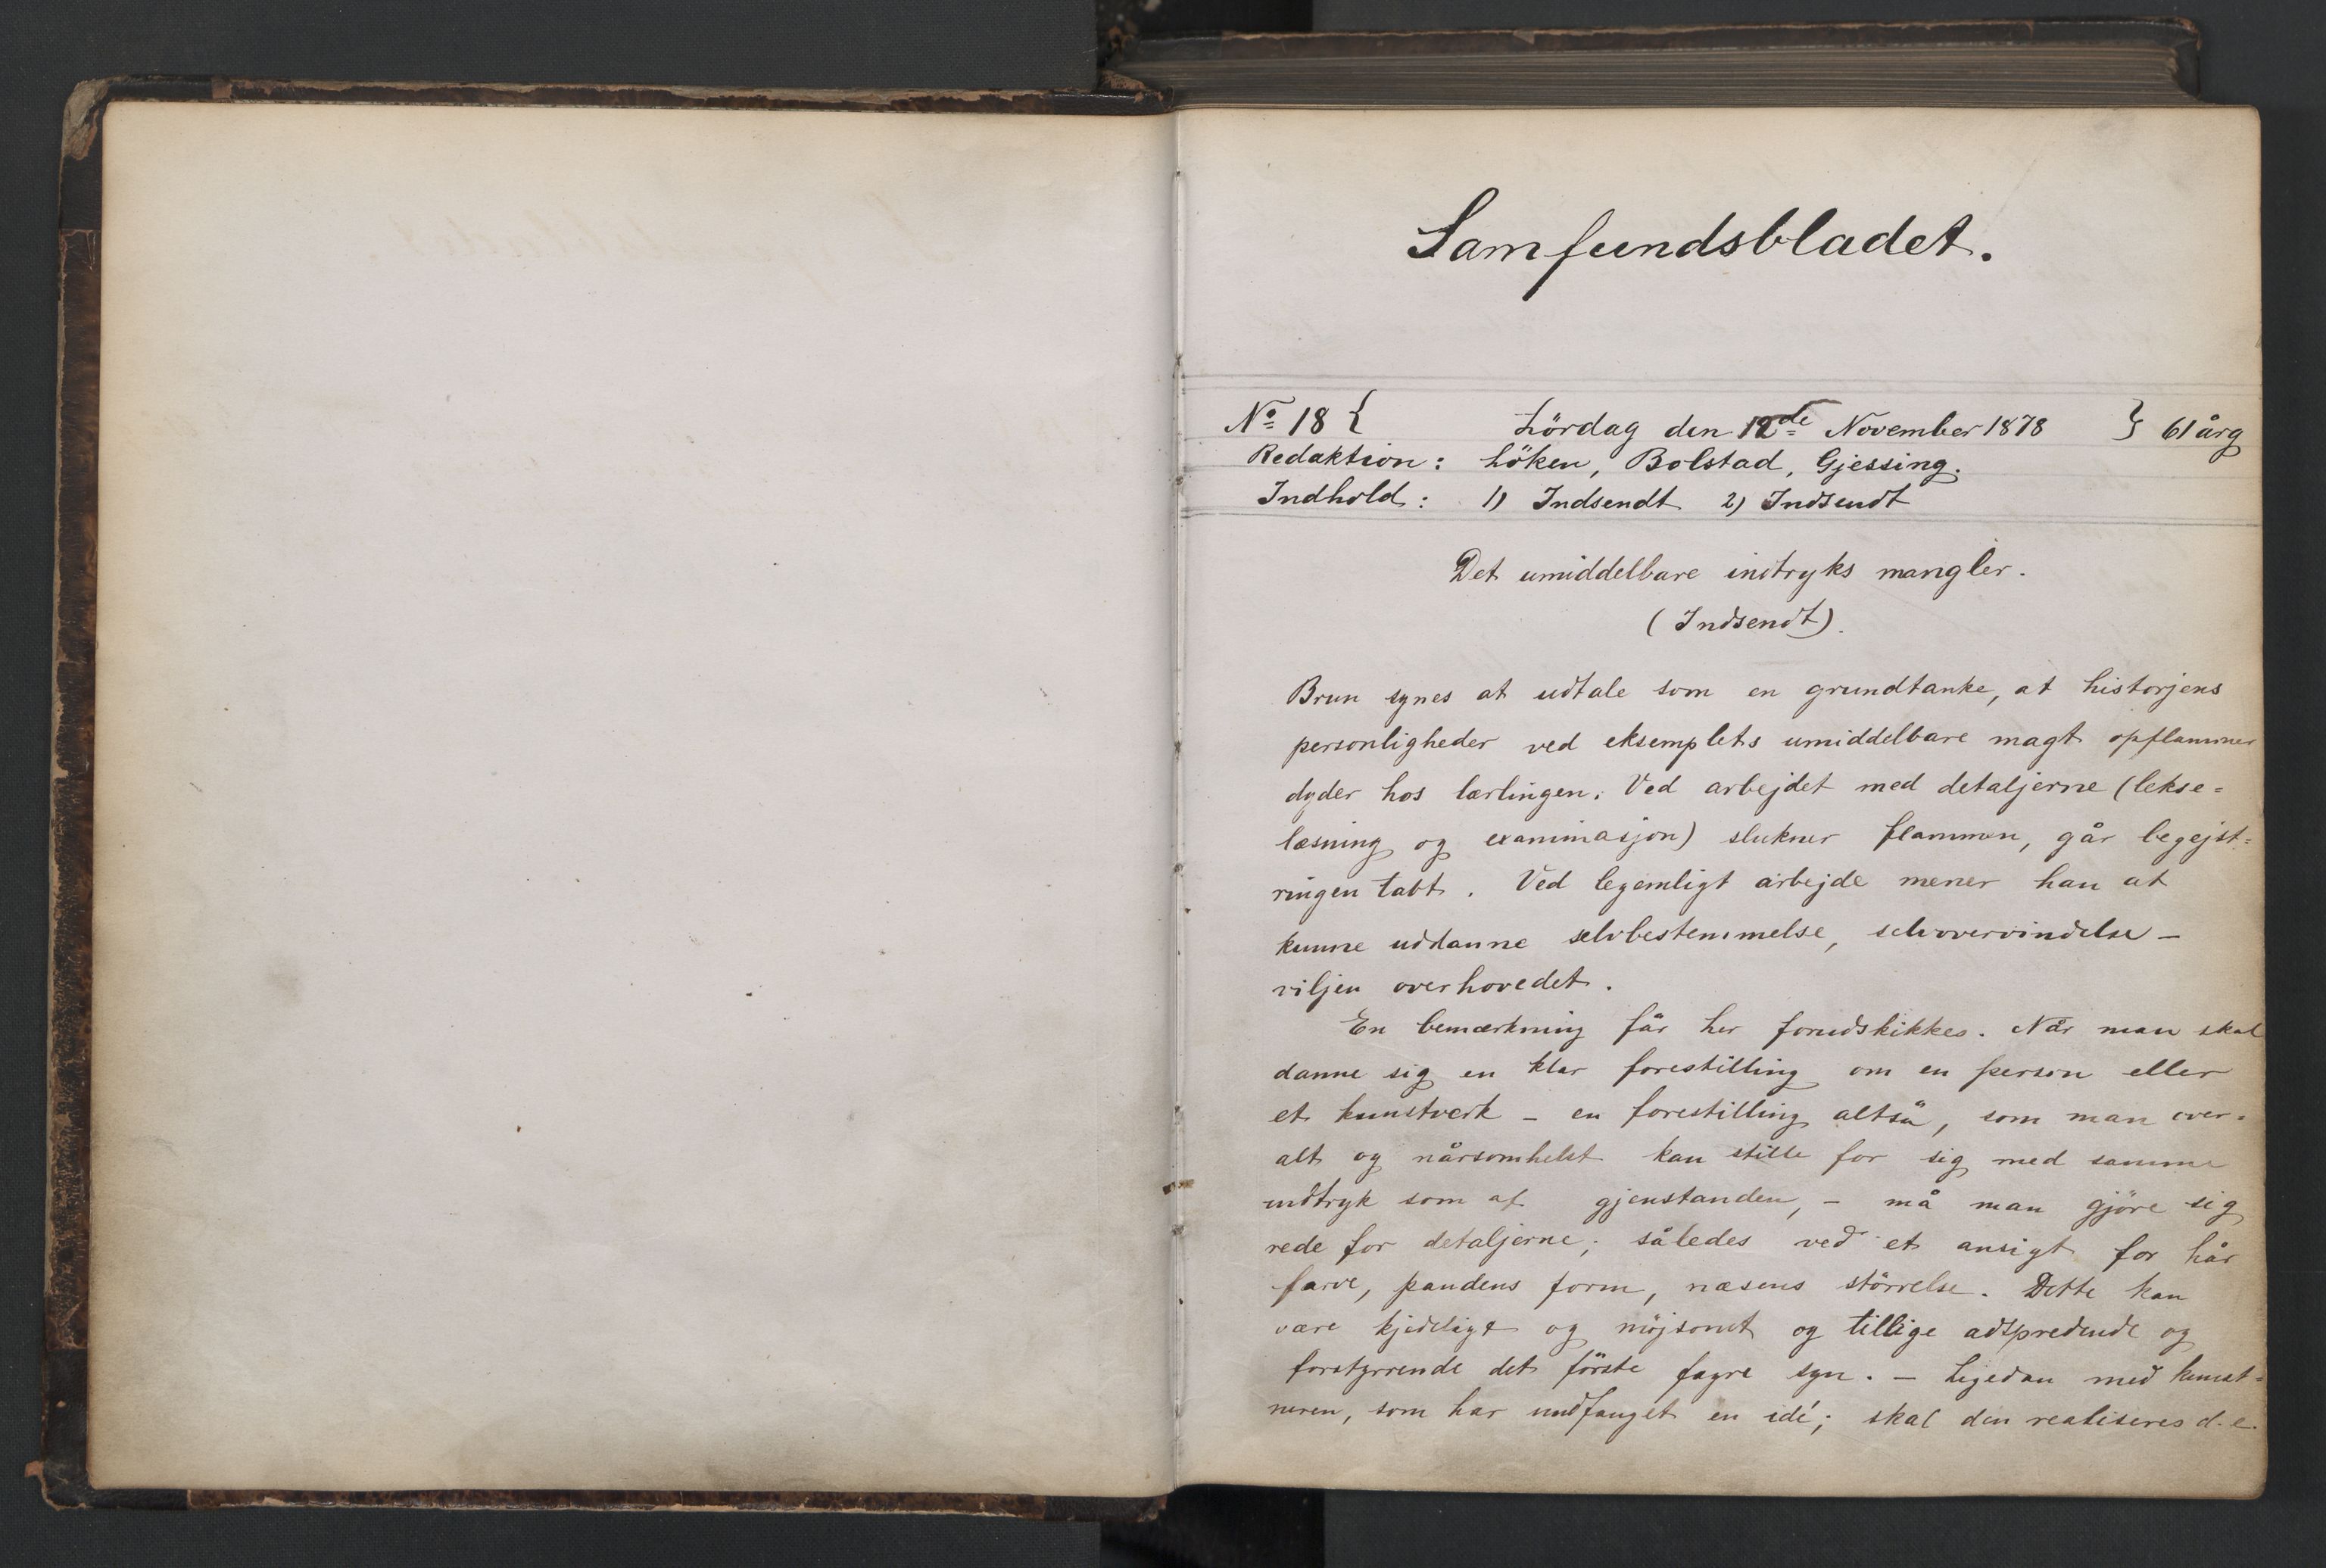 Samfundsbladet.
No 18 { Lördag den 12de November 1878 } 61 årg
Redaktion: Löken, Bolstad, Gjessing.
Indhold: 1) Indsendt 2) Indsendt
Det umiddelbare indtryks mangler.
(Indsendt).
Brun synes at udtale som en grundtanke, at historjens
personligheder ved eksemplets umiddelbare magt opflammer
dyder hos lærlingen. Ved arbejdet med detaljerne (lekse=
læsning og examinasjon) slukner flammen, går begejst=
ringen tabt. Ved legemligt arbejde mener han at
kunne uddanne selvbestemmelse, selvovervindelse –
viljen overhovedet.
En bemærkning får her forudskikkes. Når man skal
danne sig en klar forestilling om en person eller
et kunstverk – en forestilling altså, som man over=
alt og nårsomhelst kan stille for sig med samme
indtryk som af gjenstanden, – må man gjöre sig
rede for detaljerne; således ved et ansigt for hår
farve, pandens form, næsens störrelse. Dette kan
være kjedeligt og möjsomt og tillige adspredende og
forstyrrende det förste fagre syn. – Ligedan med kunst=
neren, som har undfanget en idé; skal den realiseres d.e.